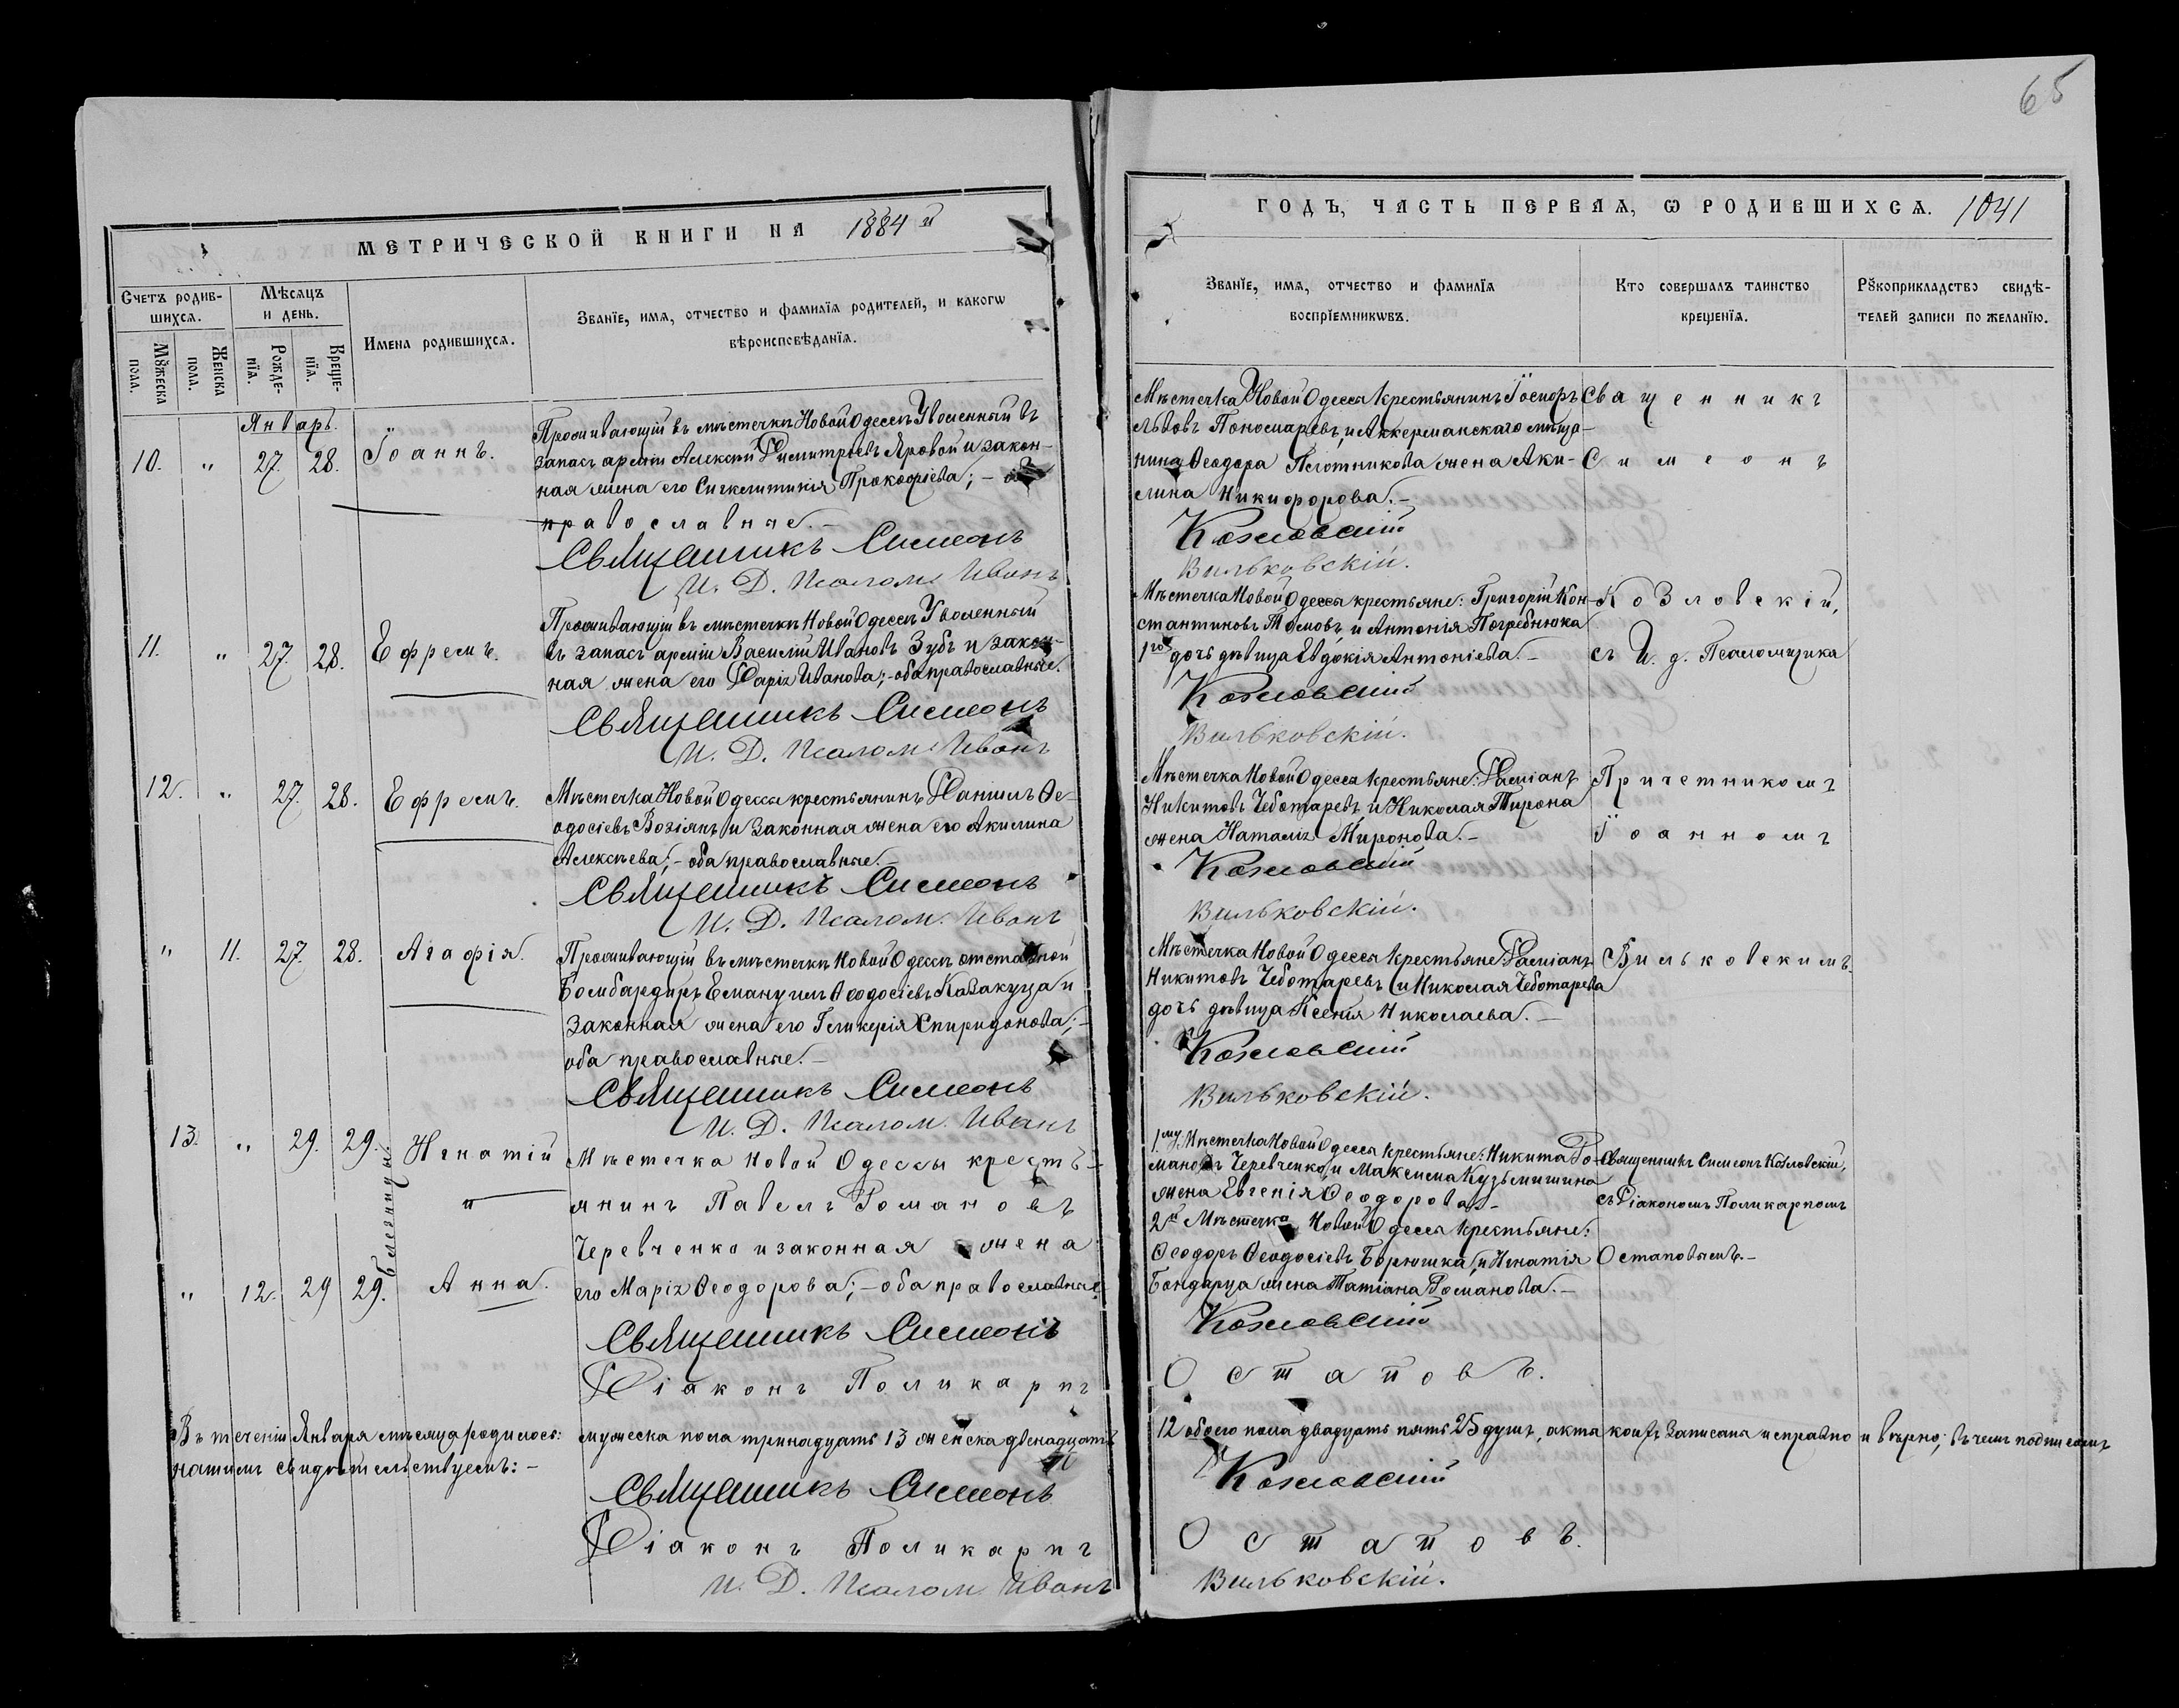 65
МЕТРИЧЕСКОЙ КНИГИ НА 1884 й
Счетъ родив-
шихся.
Мѣсяцъ
и день.
Имена родившихся.
Званїе, имя, отчество и фамилїя родителей, и какогѡ
вѣроисповѣданїя.
Мꙋжеска
пола.
Женска
пола.
Рожде-
нїя.
Креще-
нїя.
Январь.
10. " 27. 28. Іоаннъ.
Проживающій въ мѣстечкѣ Новой Одессѣ Уволенный въ
запасъ арміи Алексѣй Димитріевъ Яровой и закон-
ная жена его Сигклитикія Прокофіева; – оба
православные. –
Священникъ Симеонъ
И. Д. Псалом. Иванъ
11. " 27. 28. Ефремъ.
Проживающій въ мѣстечкѣ Новой Одессѣ Уволенный
въ запасъ арміи Василій Ивановъ Зубъ и закон-
ная жена его Дарія Иванова; – оба православные.
Священникъ Симеонъ
И. Д. Псалом. Иванъ
12. " 27. 28. Ефремъ.
Мѣстечка Новой Одессы крестьянинъ Даніилъ Ѳе-
одосіевъ Возіянъ и законная жена его Акилина
Алексѣева; – оба православные. –
Священникъ Симеонъ
И. Д. Псалом. Иванъ
" 11. 27. 28. Агафія.
Проживающій въ мѣстечкѣ Новой Одессѣ отставной
Бомбардиръ Емануилъ Ѳеодосіевъ Казакуца и
законная жена его Гликерія Спиридонова; –
оба православные. –
Священникъ Симеонъ
И. Д. Псалом. Иванъ
13. " 29. 29. Игнатій
и
близницы.
" 12. 29 29. Анна.
Мѣстечка Новой Одессы кресть-
янинъ Павелъ Романовъ
Черевченко и законная жена
его Марія Ѳеодорова; – оба православные
Священникъ Симеонъ
Діаконъ Поликарпъ
Въ теченіи Января мѣсяца родилось: мужеска пола тринадцать 13 женска двенадцать
нашимъ свидѣтельствуемъ: –
Священникъ Симеонъ
Діаконъ Поликарпъ
И. Д. Псалом. Иванъ
ГОДЪ, ЧАСТЬ ПЕРВАЯ, Ѡ РОДИВШИХСЯ. 1041
Званїе, имя, отчество и фамилїя
воспрїемникѡвъ.
Кто совершалъ таинство
крещенїя.
Рꙋкоприкладство свидѣ-
телей записи по желанїю.
Мѣстечка Новой Одессы крестьянинъ Іосифъ
Львовъ Пономаревъ, и Аккерманскаго мѣща-
нина Ѳеодора Плотникова жена Аки-
лина Никифорова. –
Козловскій
Вильковскій.
Мѣстечка Новой Одессы крестьяне: Григорій Кон-
стантиновъ Томовъ, и Антонія Погребнюка
1го дочь дѣвица Евдокія Антоніева. –
Козловскій
Вильковскій.
Мѣстечка Новой Одессы крестьяне: Даміанъ
Никитовъ Чеботаревъ, и Николая Тирона
жена Наталія Миронова. –
Козловскій
Вильковскій.
Мѣстечка Новой Одессы крестьяне Даміанъ
Никитовъ Чеботаревъ и Николая Чеботарева
дочь дѣвица Ксенія Николаева. –
Козловскій
Вильковскій.
Священникъ
Симеонъ
Козловскій,
съ И. д. Псаломщика
Причетникомъ
Іоанномъ
Вильковскимъ.
1му Мѣстечка Новой Одессы крестьяне: Никита Ро-
мановъ Черевченко, и Максима Кузьмишина
жена Евгенія Ѳеодорова. –
2й Мѣстечка Новой Одессы крестьяне:
Ѳеодоръ Ѳеодосіевъ Борюшка, и Игнатія
Бондарца жена Татіана Романова. –
Козловскій
Остаповъ.
Священникъ Симеонъ Козловскій,
съ Діакономъ Поликарпомъ
Остаповымъ. –
12 обоего пола двадцать пять 25 душъ, акта коихъ записаны исправно и вѣрно; въ чемъ подписомъ
Козловскій
Остаповъ.
Вильковскій.